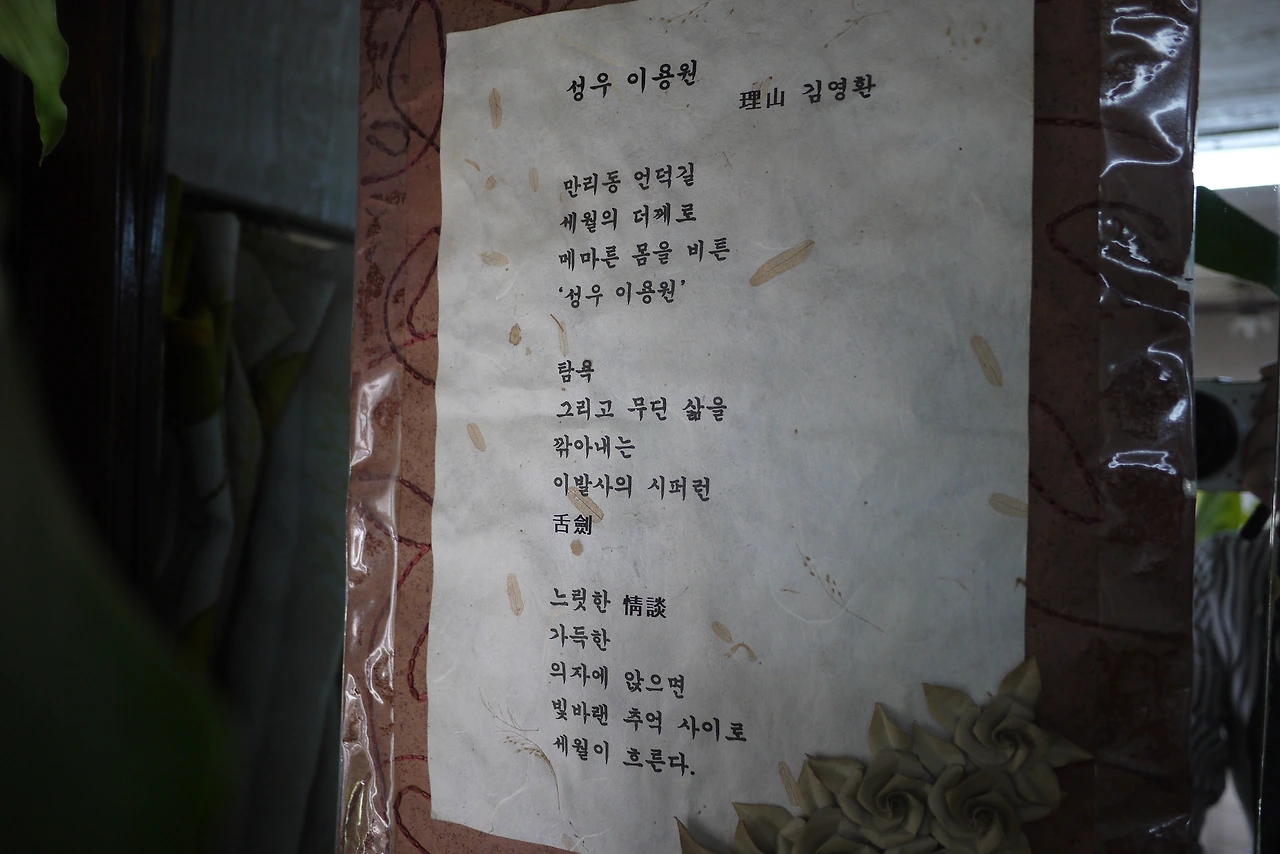 성우 이용원
理山 김영환
만리동 언덕길
세월의 더께로
메마른 몸을 비튼
‘성우 이용원’
탐욕
그리고 무딘 삶을
깎아내는
이발사의 시퍼런
舌劍
느릿한 情談
가득한
의자에 앉으면
빛바랜 추억 사이로
세월이 흐른다.